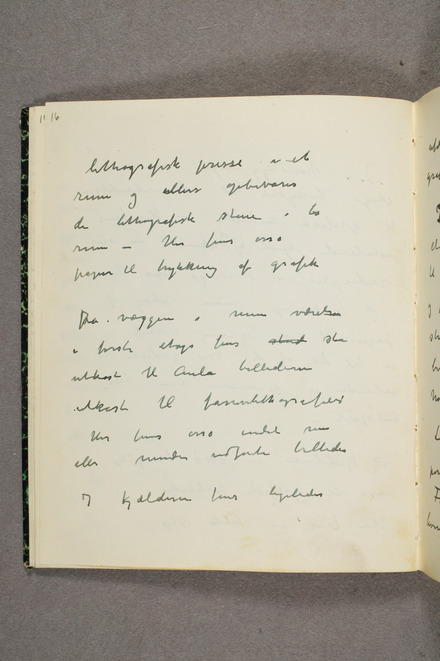 1" 16
lithografisk presse i et
rum og ellers opbevares
de lithografiske stene i to
rum – Her fins også
papir til trykking af grafik
På væggene i rum værelse
i første etage fins store
utkast til Aula billederne
utkast til farvelithografier
Her fins også endel mer
eller mindre udførte billeder
I Kjælderen fins ligeledes